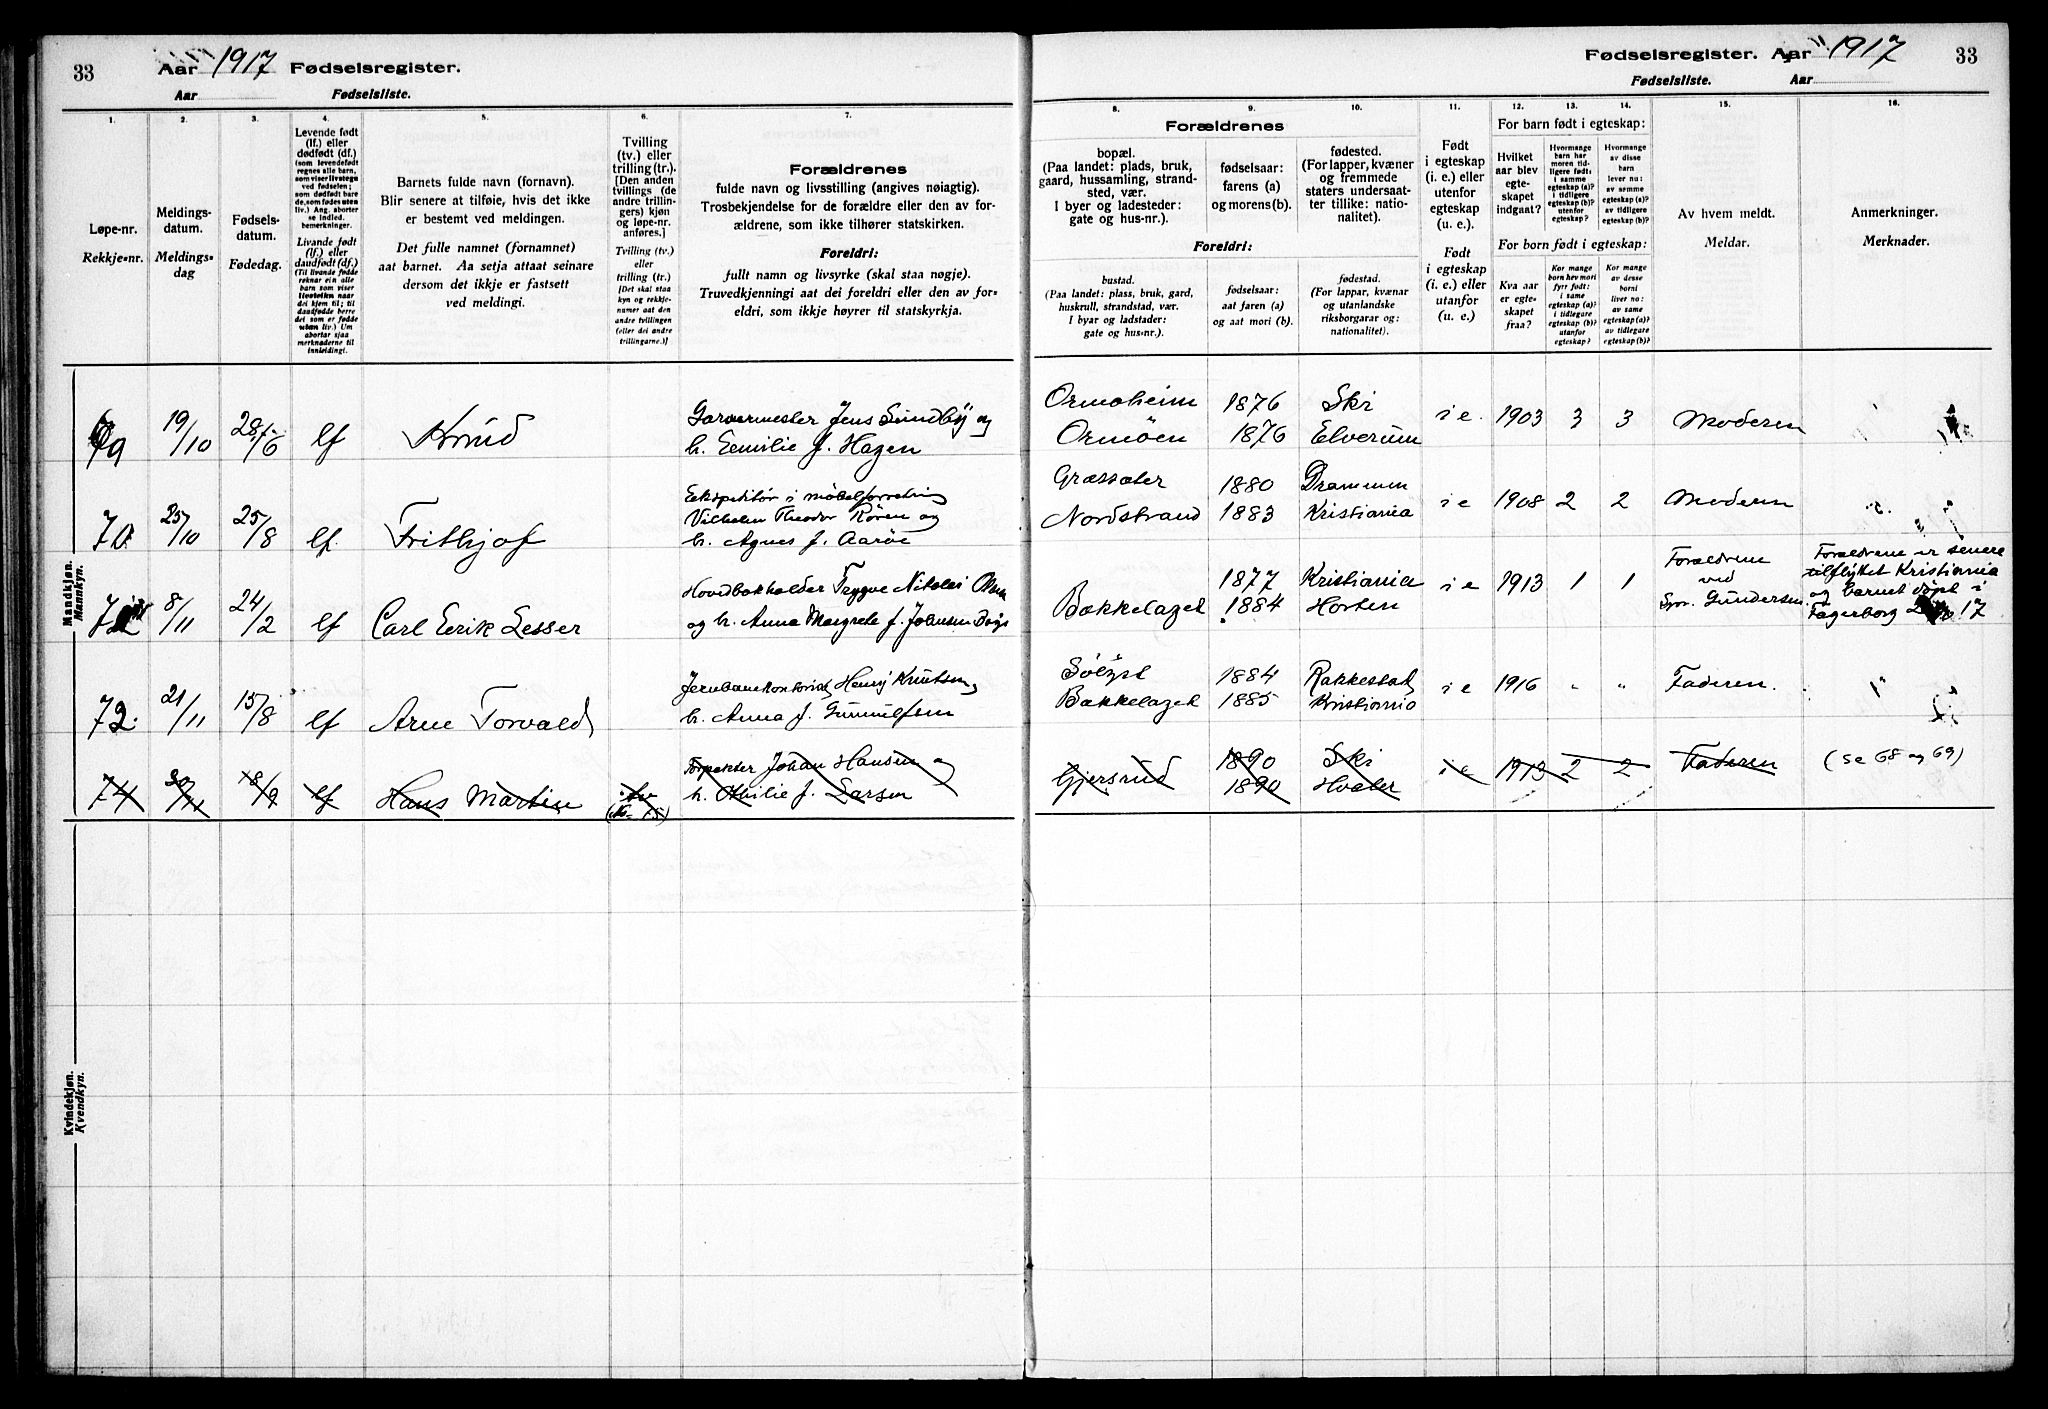 33
Aar 1917 Fødselsregister.
Aar Fødselsliste.
Fødselsregister. Aar 1917
33
Fødselsliste. Aar
1. 2. 3. 4. 5. 6. 7.
Løpe-nr.
Rekkje-nr.
Meldings-
datum.
Meldings-
dag
Fødsels-
datum.
Fødedag.
Levende født
(lf.) eller
dødfødt (df.)
(som levendefødt
regnes alle barn,
som viser livstegn
ved fødselen;
som dødfødt bare
de, som fødes uten
liv.) Ang. aborter
se indled.
bemerkninger.
Livande født
(lf.) eller
daudfødt (df.)
(Til livande fødde
reknar ein alle
barn som viser
livsteikn naar
dei kjem til; til
daudfødde berre
dei som er fødde
utan liv.) Um
abortar sjaa
merknaderne til
innleiding).
Barnets fulde navn (fornavn).
Blir senere at tilføie, hvis det ikke
er bestemt ved meldingen.
Det fulle namnet (fornamnet)
aat barnet. Aa setja attaat seinare
dersom det ikkje er fastsett
ved meldingi.
Tvilling
(tv.) eller
trilling (tr.).
[Den anden
tvillings (de
andre trillin-
gers) kjøn
og løpe-nr.
anføres.]
Tvilling (tv.)
eller
trilling (tr.)
[Det skal staa
kyn og rekkje-
numer aat den
andre tvillingen
(eller dei andre
trillingarne.)]
Forældrenes
fulde navn og livsstilling (angives nøiagtig).
Trosbekjendelse for de forældre eller den av for-
ældrene, som ikke tilhører statskirken.
Foreldri:
fullt namn og livsyrke (skal staa nøgje).
Truvedkjenningi aat dei foreldri eller den av for-
eldri, som ikkje høyrer til statskyrkja.
8. 9. 10. 11. 12. 13. 14. 15. 16.
Forældrenes
bopæl.
(Paa landet: plads, bruk,
gaard, hussamling, strand-
sted, vær.
I byer og ladesteder:
gate og hus-nr.).
fødselsaar:
farens (a)
og morens (b).
fødested.
(For lapper, kvæner
og fremmede
staters undersaat-
ter tillike: natio-
nalitet).
Foreldri:
bustad.
(Paa landet: plass, bruk, gard,
huskrull, strandstad, vær.
I byar og ladstader:
gate og hus-nr.).
fødselsaar:
aat faren (a)
og aat mori (b).
fødestad.
(For lappar, kvænar
og utanlandske
riksborgarar og:
nationalitet).
Født
i egteskap
(i. e.) eller
utenfor
egteskap
(u. e.).
Født
i egteskap
(i. e.) eller
utanfor
(u. e.).
For barn født i egteskap:
Hvilket
aar blev
egte-
skapet
indgaat?
Hvormange
barn har
moren tid-
ligere født:
i samme
egteskap (a)?
i tidligere
egteskap (b)?
utenfor
egteskap?
Hvormange
av disse
barn
lever nu:
av samme
egteskap (a)?
av tidligere
egteskap (b)?
For born født i egteskap:
Kva aar
er egte-
skapet
fraa?
Kor mange
born hev mori
fyrr født:
i same
egteskap (a)?
i tidlegare
egteskap (b)?
utanfor
egteskap?
Kor mange
av desse
borni
liver no:
av same
egteskap (a)?
av tidlegare
egteskap (b)?
Av hvem meldt.
Meldar.
Anmerkninger.
Merknader.
Mandkjøn.
Mannkyn.
69 19/10 28/6 lf Knud
Garvermester Jens Sundby og
h. Eemilie f. Hagen
Ormøheim 1876 Ski
Ormøen 1876 Elverum
i e. 1903 3 3 Moderen
70 25/10 25/8 lf. Frithjof
Eekspeditør i møbelforretning
Vilhelm Theodor Røren og
h. Agnes f. Aarøe
Græssæter 1880 Drammen
Nordstrand 1883 Kristiania
i e 1908 2 2 Moderen
8/11 24/2 lf Carl Eerik Lesser
Hovedbokholder Trygve Nikolai
og h. Anna Margrete f. Johnsen
Bækkelaget 1877 Kristiania
1884 Horten
i e 1913 1 1
Forældrene
ved
Spr. Gundersen
Forældrene er senere
tilflyttet Kristiania
og barnet døpt i
Fagerborg 17
72. 21/11 15/8 lf Arne Torvald
Jernbanekontorist Henry Knutsen
h. Anna f. Gunnulfsen
Sølyst 1884 Rakkestad
Bækkelaget 1885 Kristiania
i e 1916 " " Faderen.
74 30/11 18/9 lf Hans Martin tv
(No 75)
Johan Hansen og
h. Othilie f. Larsen
Gjersrud 1890 Ski
1890 Hvaler
i e 1913 2 2 Faderen (Se 68 og 69)
Kvindekjøn.
Kvendkyn.